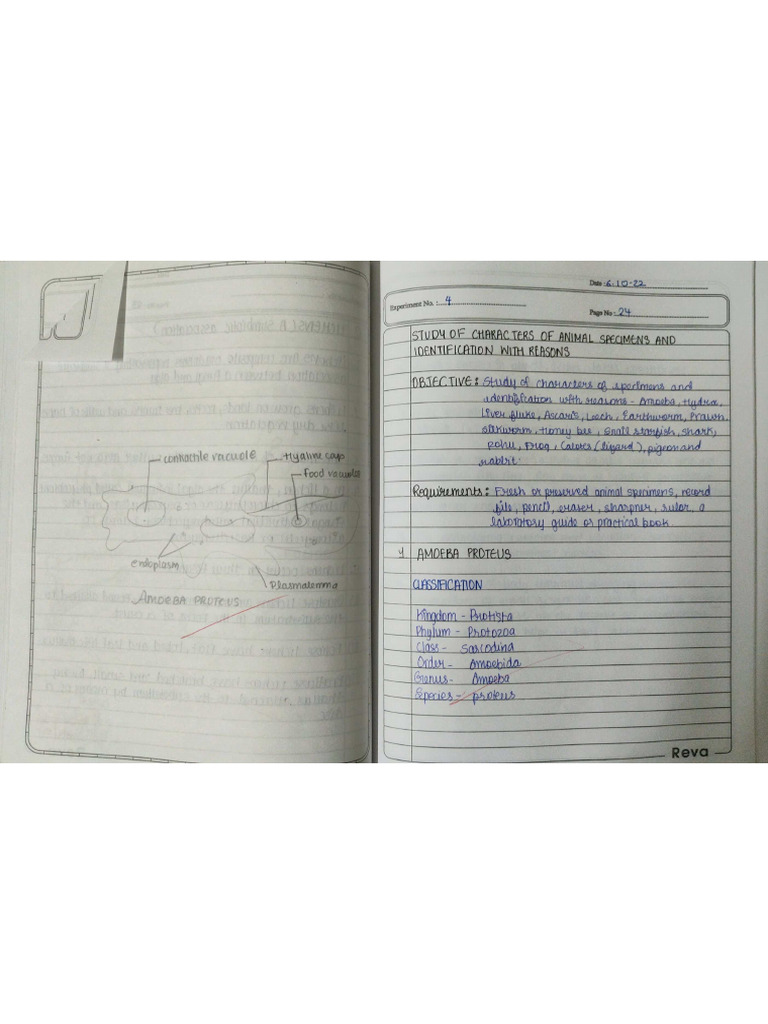 contractile vacuole
Hyaline cap
food vacuoles
endoplasm
Plasmalemma
AMOEBA PROTEUS
Date : 6.10.22
Experiment No. : 4
Page No : 24
STUDY OF CHARACTERS OF ANIMAL SPECIMENS AND
IDENTIFICATION WITH REASONS
OBJECTIVE: Study of characters of specimens and
identification with reasons - Amoeba, Hydra,
Liver fluke, Ascaris, Leech, Earthworm, Prawn,
silkworm, Honey bee, snail starfish, shark,
rohu, Frog, Calotes (lizard), pigeon and
rabbit.
Requirements: Fresh or preserved animal specimens, record
file, pencil, eraser, sharpner, ruler, a
laboratory guide or practical book
1. AMOEBA PROTEUS
CLASSIFICATION
Kingdom - Protista
Phylum - Protozoa
Class - Sarcodina
Order - Amoebida
Genus - Amoeba
Species - proteus
Reva